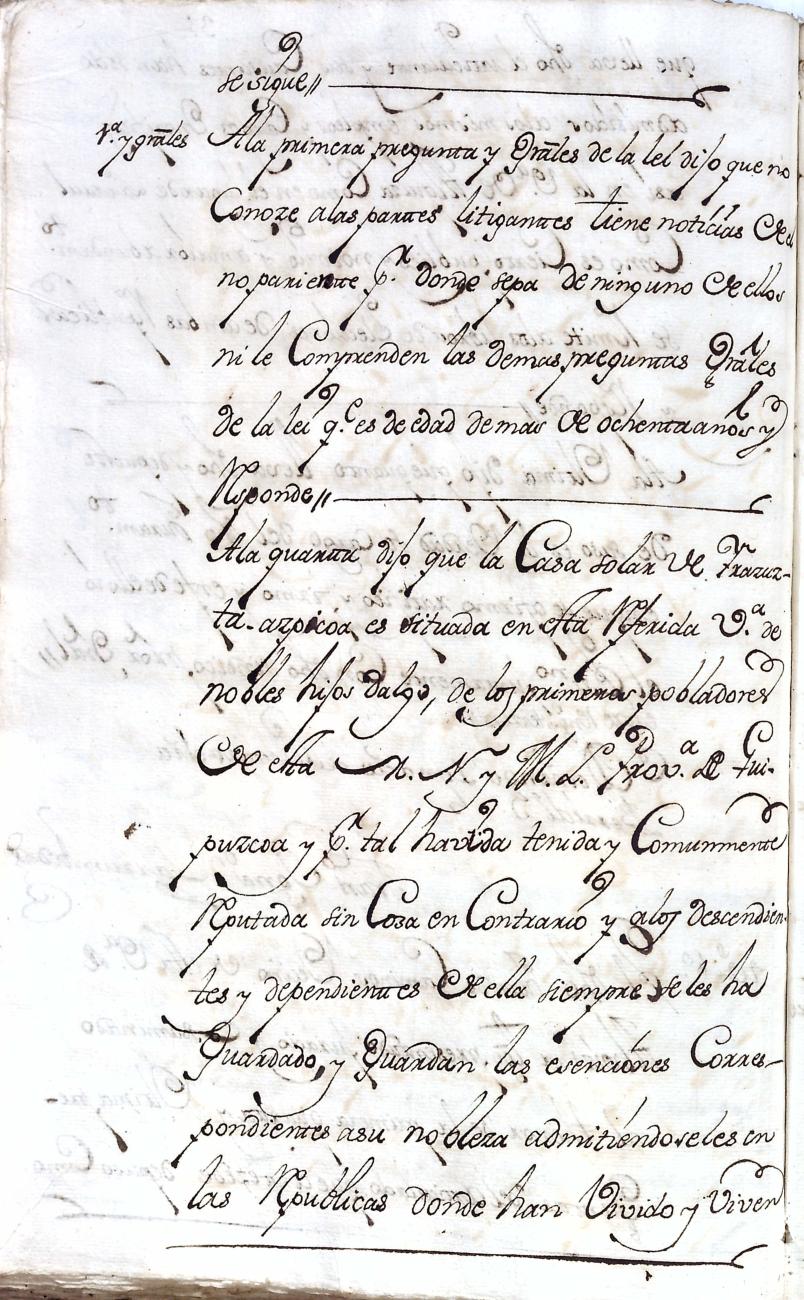 se sigue //
1.ª y grãles A la primera pregunta y Grãles de la lei dijo que no
Conoze a las parttes litiganttes tiene noticias de el
no parientte p.r donde sepa de ninguno de ellos
ni le Comprenden las demas preguntas Grãles
de la lei q.e es de edad de mas de ochenta anos y
Responde //
A la quartta dijo que la Casa solar de Yrazuz-
ta-azpicoa es situada en esta Referida V.ª de
nobles hijos dalgo, de los primeros pobladores
de esta M. N. y M. L. Prov.ª de Gui-
puzcoa y p.r tal havida tenida y Comunmentte
Reputada sin Cosa en Contrario y a los descendien-
tes y dependienttes de ella siempre se les ha
Guardado, y Guardan las esenciones Corres-
pondientes a su nobleza admitiendoseles en
las Republicas donde han Vivido y Viven